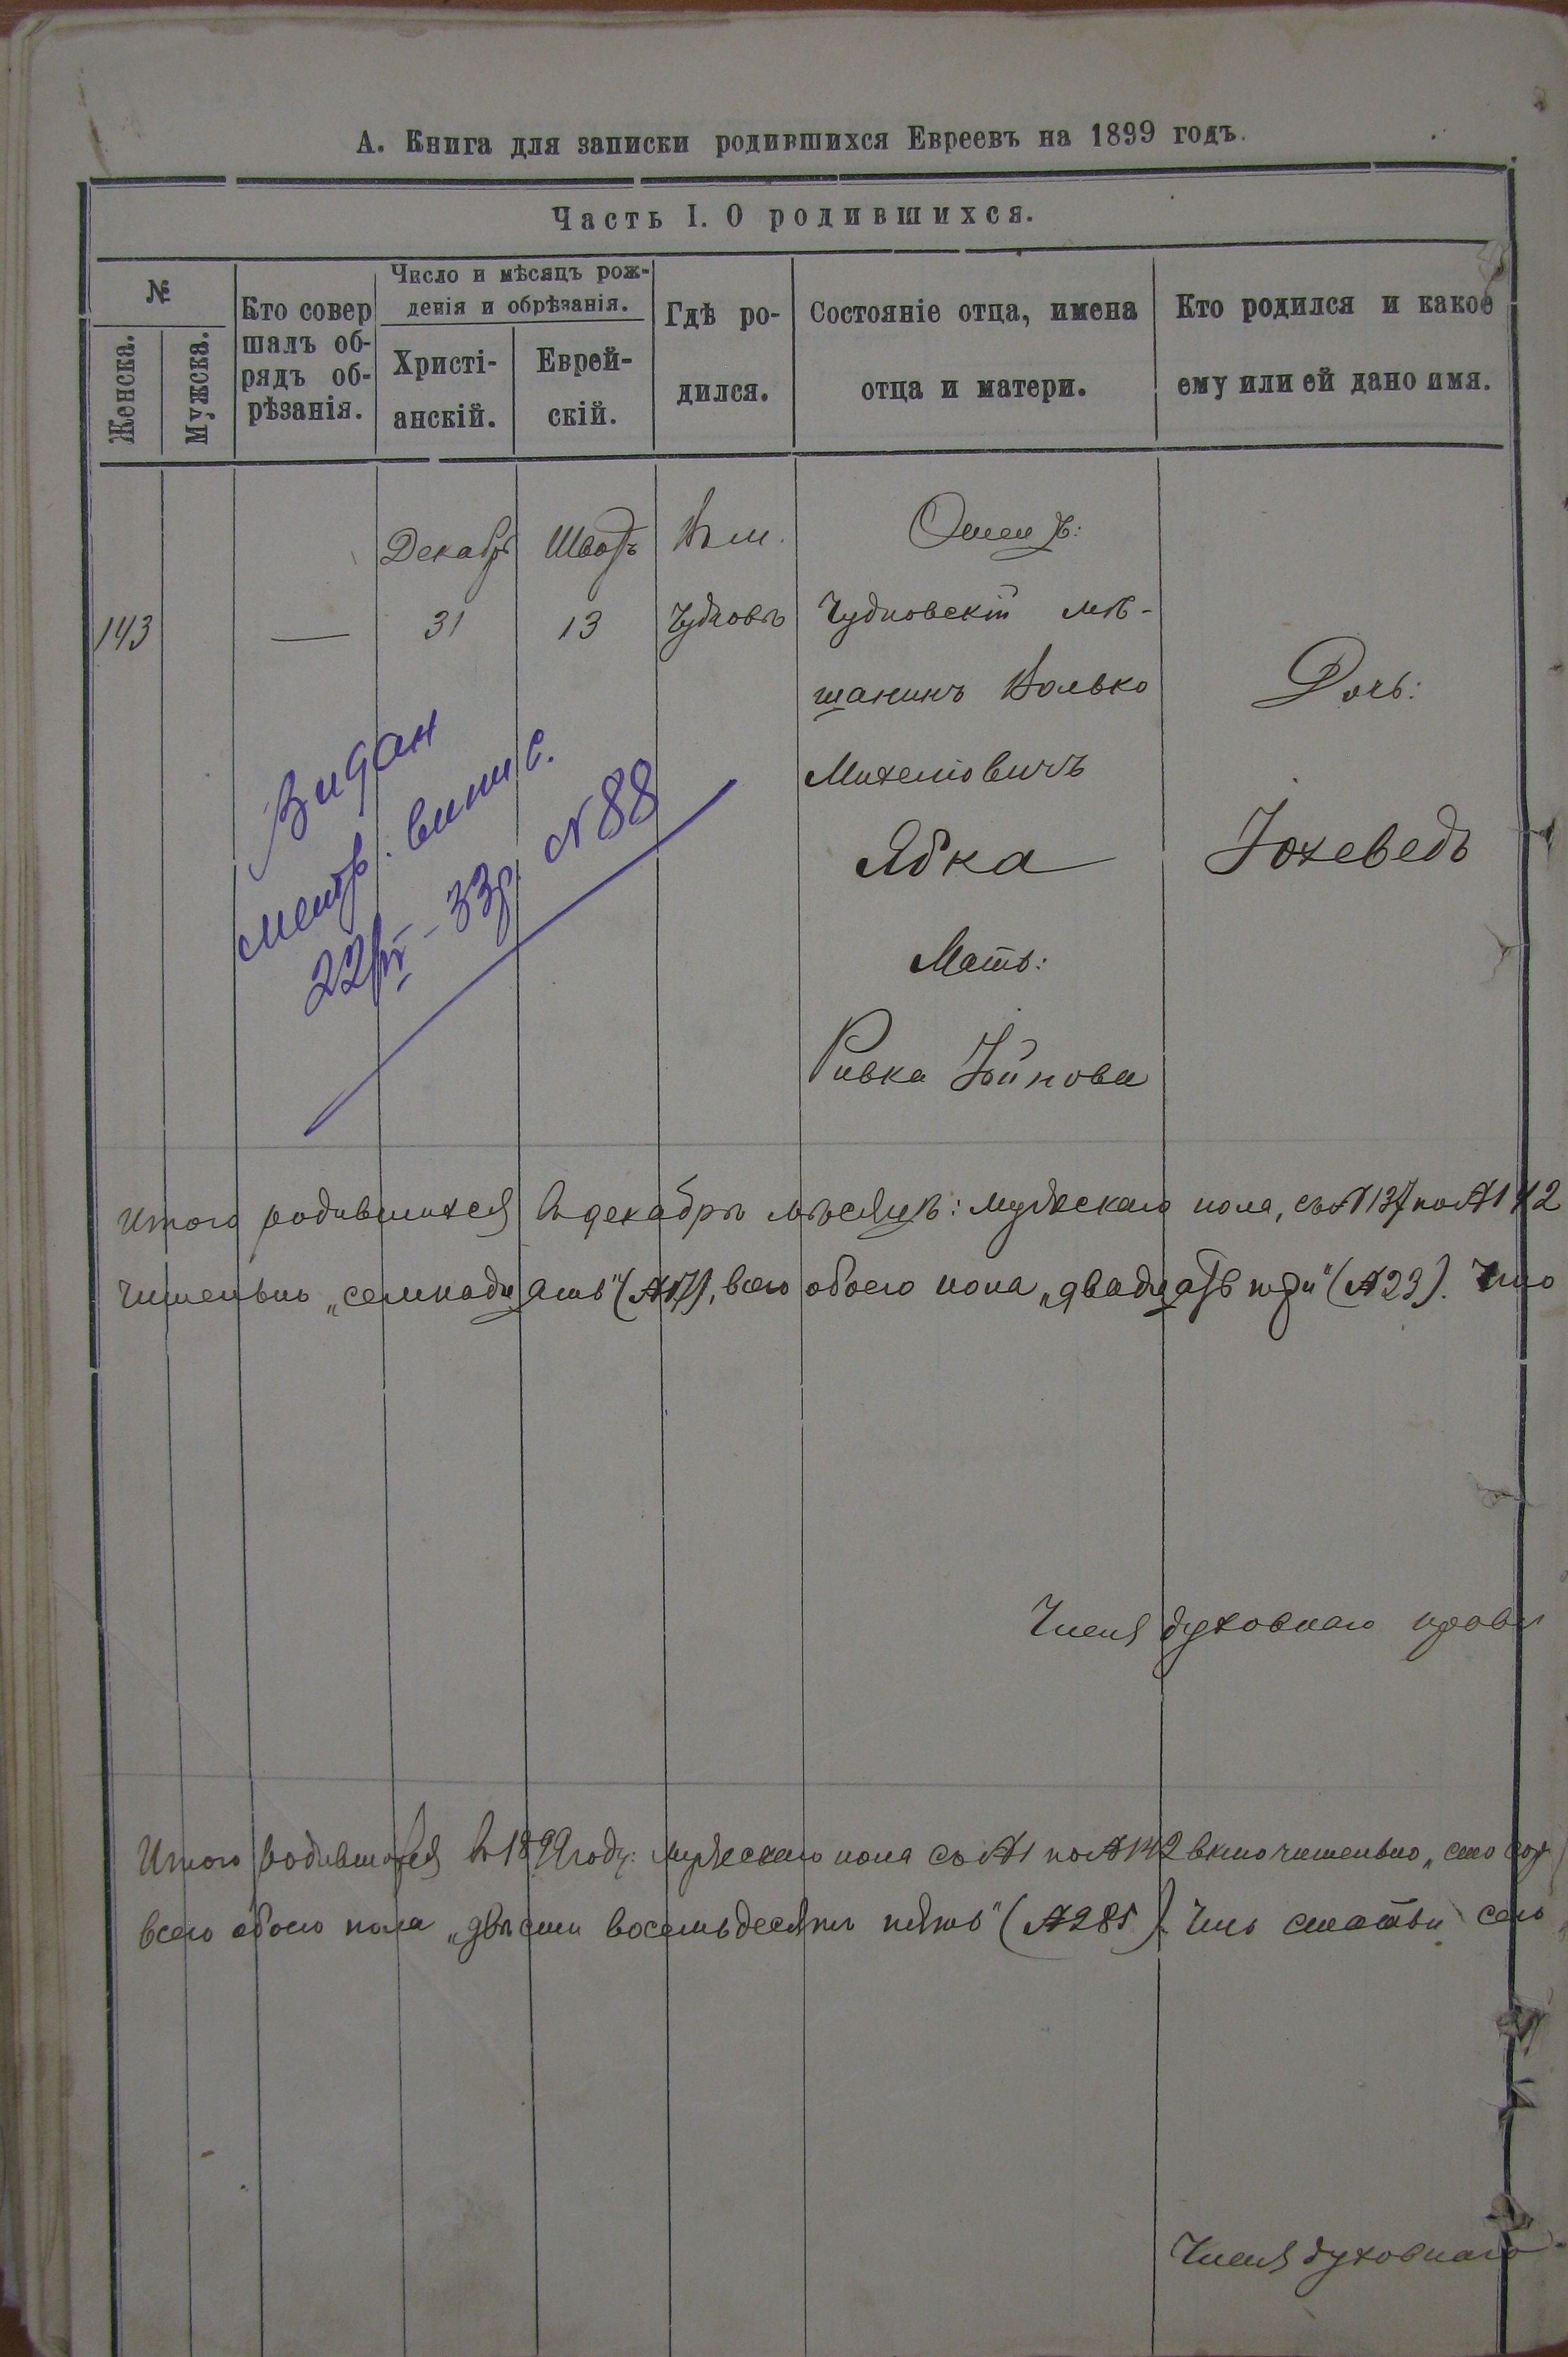 А. Книга для записки родившихся Евреевъ на 1899 годъ.
Часть I. О родившихся.
№
Женска.
Мужска.
Кто совер
шалъ об-
рядъ об-
рѣзанія.
Число и мѣсяцъ рож-
денія и обрѣзанія.
Христі-
анскій.
Еврей-
скій.
Гдѣ ро-
дился.
Состояніе отца, имена
отца и матери.
Кто родился и какое
ему или ей дано имя.
143
—
Декабр
31
Шватъ
13
Въ м.
Чудновъ
Отецъ:
Чудновскій мѣ-
щанинъ Волько
Михелiовичъ
Ябка
Мать:
Ривка
Дочь:
Іохеведъ
Видан
метр. випис.
22/IV - 33р. № 88
Итого родившихся въ декабрѣ мѣсяцѣ: мужескаго пола, съ №137 по №142
чительно „семнадцать" (№17), всего обоего пола „двадцать три" (№23). Что
Члены духовнаго правл
Итого родившихся въ 1899 году: мужескаго пола съ №1 по №142 включительно „сто сор
всего обоего пола „двѣсти восемьдесятъ пять" (№285). Что статьи сего
Члены духовнаго